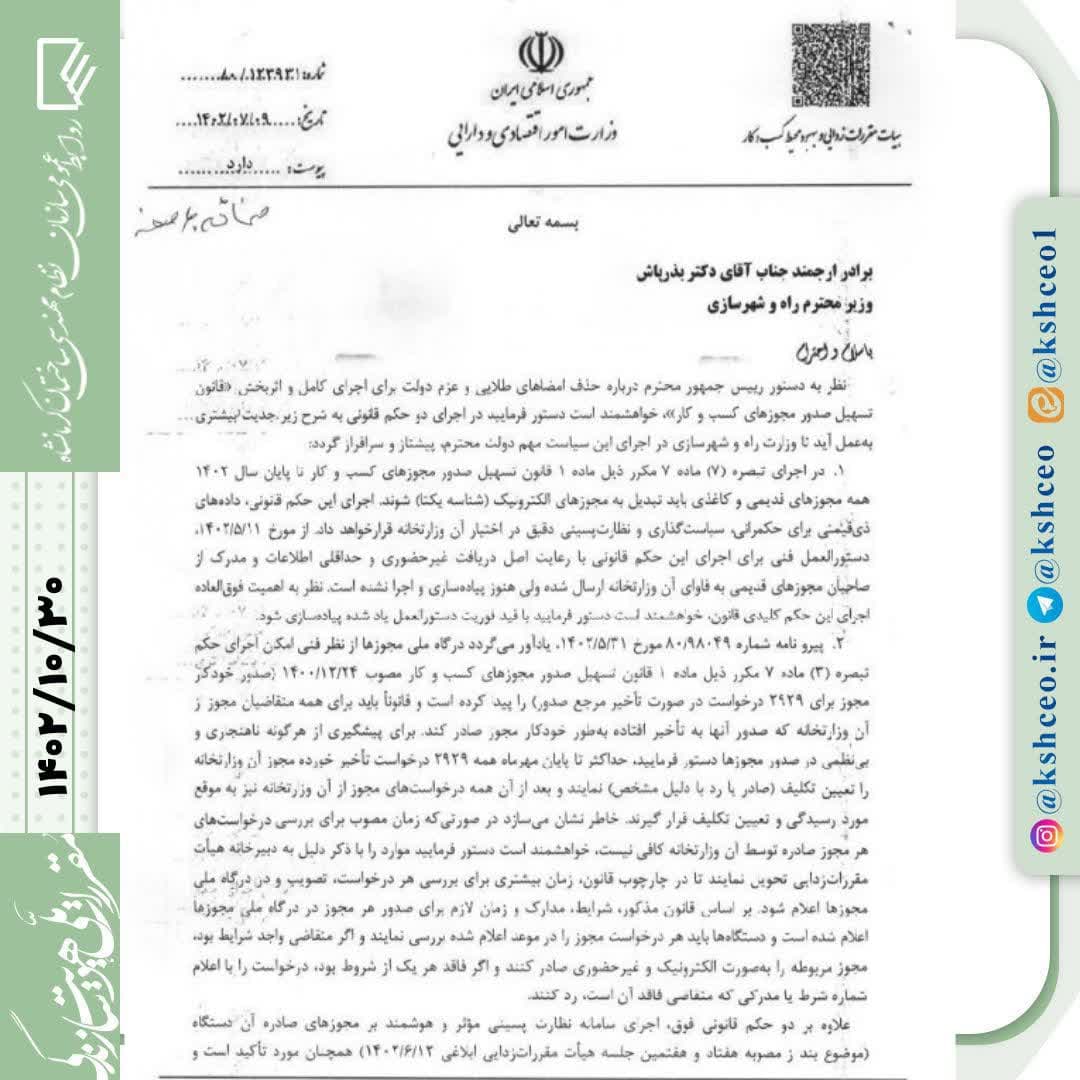 روابط عمومی سازمان نظام مهندسی ساختمان کرمانشاه
۱۴۰۲/۱۰/۳۰
شماره: ۸۰/۱۲۳۹۳۱
تاریخ: ۱۴۰۲/۰۷/۰۹
پیوست: دارد
جمهوری اسلامی ایران
وزارت امور اقتصادی و دارایی
هیات مقررات زدایی و بهبود محیط کسب و کار
بسمه تعالی
برادر ارجمند جناب آقای دکتر بذرپاش
وزیر محترم راه و شهرسازی
با سلام و احترام
نظر به دستور رییس جمهور محترم درباره حذف امضاهای طلایی و عزم دولت برای اجرای کامل و اثربخش «قانون
تسهیل صدور مجوزهای کسب و کار»، خواهشمند است دستور فرمایید در اجرای دو حکم قانونی به شرح زیر جدیت بیشتری
به‌عمل آید تا وزارت راه و شهرسازی در اجرای این سیاست مهم دولت محترم، پیشتاز و سرافراز گردد:
۱. در اجرای تبصره (۷) ماده ۷ مکرر ذیل ماده ۱ قانون تسهیل صدور مجوزهای کسب و کار تا پایان سال ۱۴۰۲
همه مجوزهای قدیمی و کاغذی باید تبدیل به مجوزهای الکترونیک (شناسه یکتا) شوند. اجرای این حکم قانونی، داده‌های
ذی‌قیمتی برای حکمرانی، سیاست‌گذاری و نظارت‌پسینی دقیق در اختیار آن وزارتخانه قرارخواهد داد. از مورخ ۱۴۰۲/۵/۱۱،
دستورالعمل فنی برای اجرای این حکم قانونی با رعایت اصل دریافت غیرحضوری و حداقلی اطلاعات و مدرک از
صاحبان مجوزهای قدیمی به فاوای آن وزارتخانه ارسال شده ولی هنوز پیاده‌سازی و اجرا نشده است. نظر به اهمیت فوق‌العاده
اجرای این حکم کلیدی قانون، خواهشمند است دستور فرمایید با قید فوریت دستورالعمل یاد شده پیاده‌سازی شود.
۲. پیرو نامه شماره ۸۰/۹۸۰۴۹ مورخ ۱۴۰۲/۵/۳۱، یادآور می‌گردد درگاه ملی مجوزها از نظر فنی امکن اجرای حکم
تبصره (۳) ماده ۷ مکرر ذیل ماده ۱ قانون تسهیل صدور مجوزهای کسب و کار مصوب ۱۴۰۰/۱۲/۲۴ (صدور خودکار
مجوز برای ۲۹۲۹ درخواست در صورت تأخیر مرجع صدور) را پیدا کرده است و قانوناً باید برای همه متقاضیان مجوز از
آن وزارتخانه که صدور آنها به تأخیر افتاده به‌طور خودکار مجوز صادر کند. برای پیشگیری از هرگونه ناهنجاری و
بی‌نظمی در صدور مجوزها دستور فرمایید، حداکثر تا پایان مهرماه همه ۲۹۲۹ درخواست تأخیر خورده مجوز آن وزارتخانه
را تعیین تکلیف (صادر یا رد با دلیل مشخص) نمایند و بعد از آن همه درخواست‌های مجوز از آن وزارتخانه نیز به موقع
مورد رسیدگی و تعیین تکلیف قرار گیرند. خاطر نشان می‌سازد در صورتی‌که زمان مصوب برای بررسی درخواست‌های
هر مجوز صادره توسط آن وزارتخانه کافی نیست، خواهشمند است دستور فرمایید موارد را با ذکر دلیل به دبیرخانه هیأت
مقررات‌زدایی تحویل نمایند تا در چارچوب قانون، زمان بیشتری برای بررسی هر درخواست، تصویب و در درگاه ملی
مجوزها اعلام شود. بر اساس قانون مذکور، شرایط، مدارک و زمان لازم برای صدور هر مجوز در درگاه ملی مجوزها
اعلام شده است و دستگاه‌ها باید هر درخواست مجوز را در موعد اعلام شده بررسی نمایند و اگر متقاضی واجد شرایط بود،
مجوز مربوطه را به‌صورت الکترونیک و غیرحضوری صادر کنند و اگر فاقد هر یک از شروط بود، درخواست را با اعلام
شماره شرط یا مدرکی که متقاضی فاقد آن است، رد کنند.
علاوه بر دو حکم قانونی فوق، اجرای سامانه نظارت پسینی مؤثر و هوشمند بر مجوزهای صادره آن دستگاه
(موضوع بند ز مصوبه هفتاد و هفتمین جلسه هیأت مقررات‌زدایی ابلاغی ۱۴۰۲/۶/۱۲) همچنان مورد تأکید است و
@kshceo.ir
@kshceo
@kshceo1